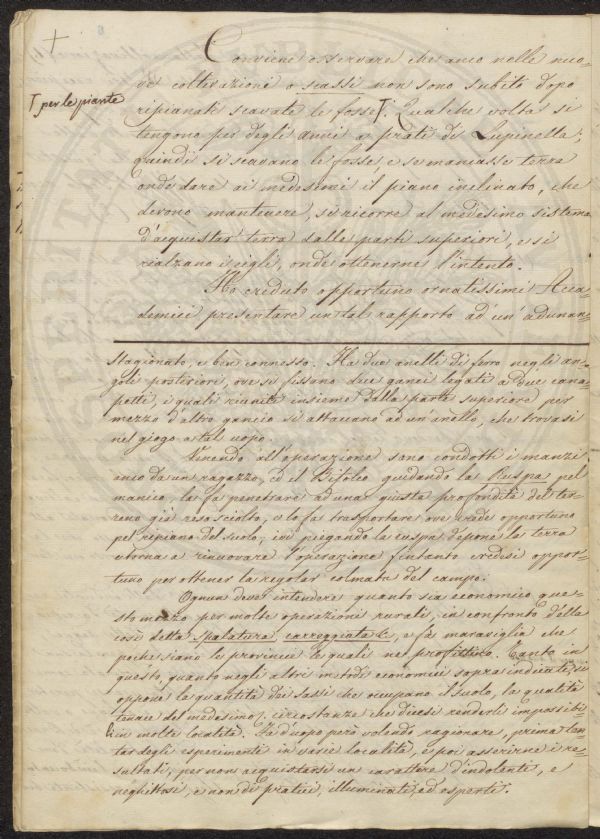 Conviene osservare che anco nelle nuo-
ve coltivazioni o scassi non sono subito dopo
ripianati scavate le fosse Γ. Qualche volta si
Γ per le piante
tengono per degli anni a prati di Lupinella;
quindi si scavano le fosse, e se mancasse terra
onde dare ai medesimi il piano inclinato, che
devono mantenere, si ricorre al medesimo sistema
d'acquistar terra dalle parti superiori, e si
rialzano i cigli, onde ottenerne l'intento.
Ho creduto opportuno ornatissimi Acca-
demici presentare un tal rapporto ad un' adunan-
stagionato, e ben connesso. Ha due anelli di ferro negli an-
goli posteriori, ove si fissano due ganci legati a due cana-
petti, i quali riuniti insieme dalla parte superiore per
mezzo d'altro gancio si attaccano ad un' anello, che trovasi
nel giogo a tal uopo.
Venendo all'operazione sono condotti i manzi
anco da un ragazzo, ed il Bifolco guidando la Ruspa pel
manico, la fa penetrare ad una giusta profondità del ter-
reno già reso sciolto, e lo fa trasportare ove crede opportuno
pel ripiano del suolo; ivi piegando la ruspa depone la terra
e torna a rinnovare l'operazione fintanto credesi oppor-
tuno per ottener la regolar colmata del campo.
Ognun deve intendere quanto sia economico que-
sto mezzo per molte operazioni rurali, in confronto della
così detta spalatura, carreggiata &c, e fa maraviglia che
poche siano le provincie le quali ne profittino. Tanto in
questo, quanto negli altri metodi economici sopra indicati, si
oppone la quantità dei sassi che occupano il suolo, la qualità
tenace del medesimo; circostanze che dicesi renderli impossibi-
li in molte località. Fa d'uopo però volendo ragionare, prima ten-
tar degli esperimenti in varie località, e poi asserirne i re-
sultati, per non acquistarsi un carattere d'indolenti, e
neghittosi, e non di pratici, illuminati, ed esperti.